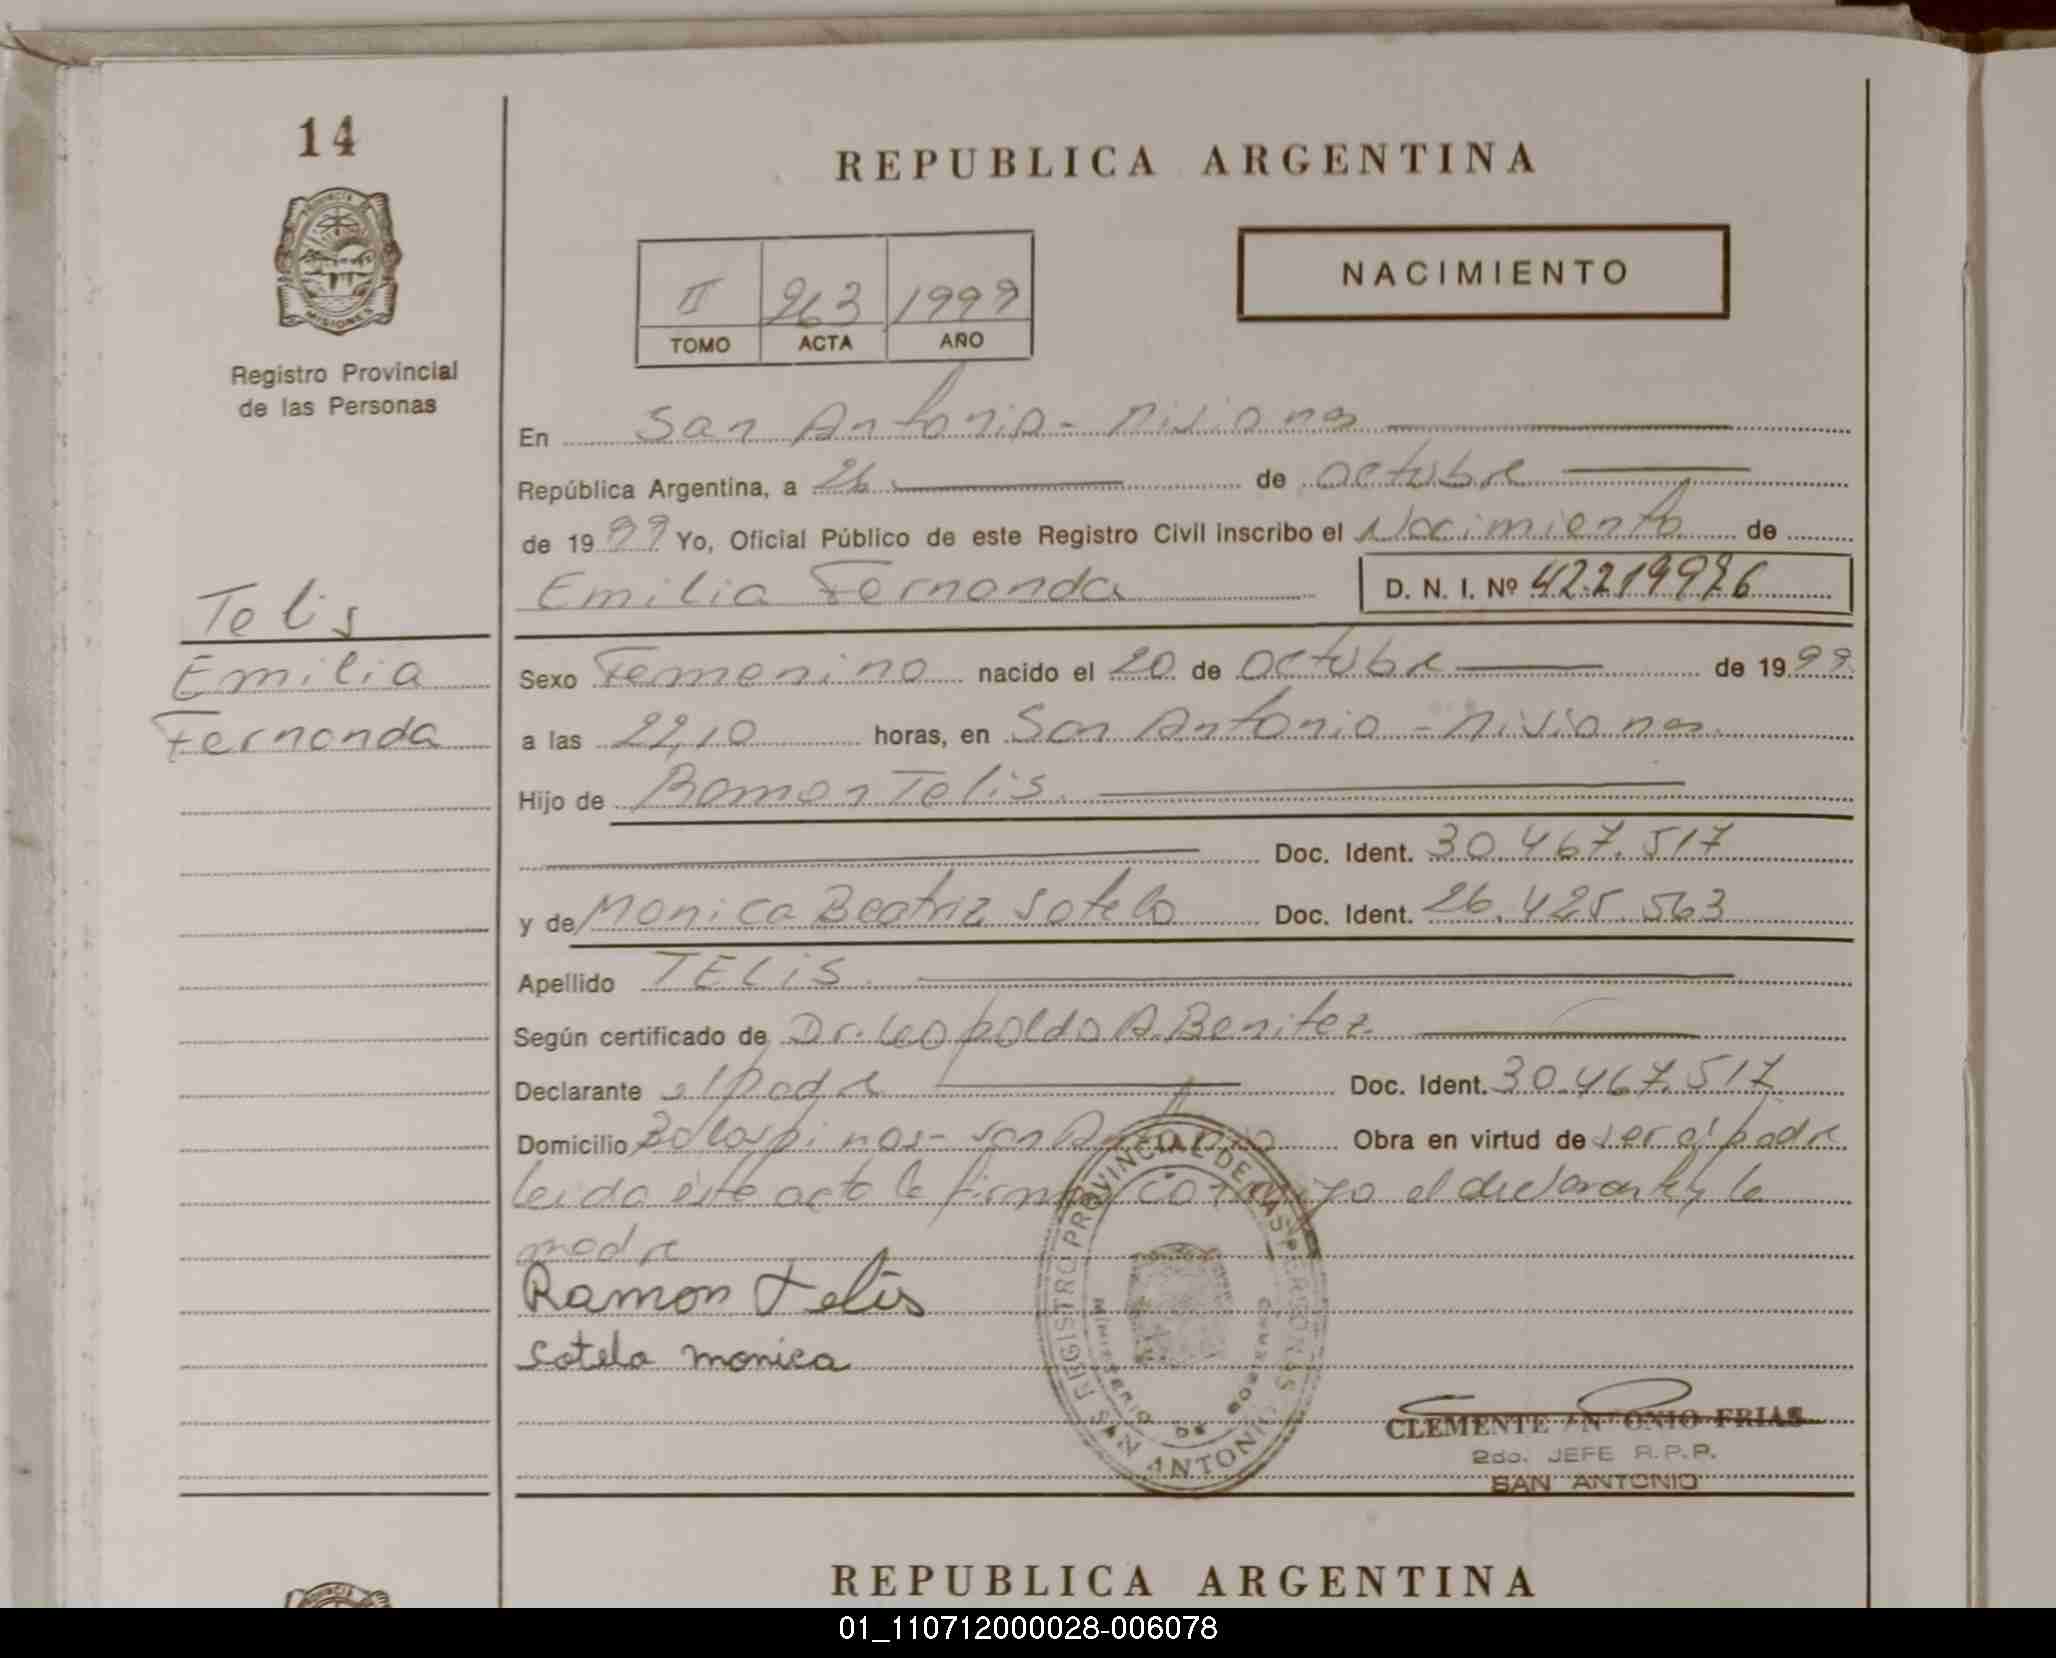 14
REPUBLICA ARGENTINA
NACIMIENTO
II 263 1999
TOMO ACTA AÑO
MISIONES
Registro Provincial
de las Personas
En San Antonio - Misiones
República Argentina, a 26 de octubre
de 1999 Yo, Oficial Público de este Registro Civil inscribo el Nacimiento de
Emilia Fernanda D. N. I. Nº 42.219926
Telis
Emilia
Fernanda
Sexo Femenino nacido el 20 de octubre de 1999
a las 22,10 horas, en San Antonio - Misiones
Hijo de Ramon Telis
Doc. Ident. 30.467.517
y de Monica Beatriz Sotelo Doc. Ident. 26.425.563
Apellido TELIS
Según certificado de Dr. Leopoldo A. Benitez
Declarante el padre Doc. Ident. 30.467.517
Domicilio San Antonio Obra en virtud de ser el padre
leida este acta la firma conmigo el declarante y la
madre
Ramon Telis
Sotelo monica
REGISTRO PROVINCIAL DE LAS PERSONAS
MINISTERIO DE GOBIERNO
SAN ANTONIO
CLEMENTE ANTONIO FRIAS
2do. JEFE R.P.P.
SAN ANTONIO
REPUBLICA ARGENTINA
01_110712000028-006078